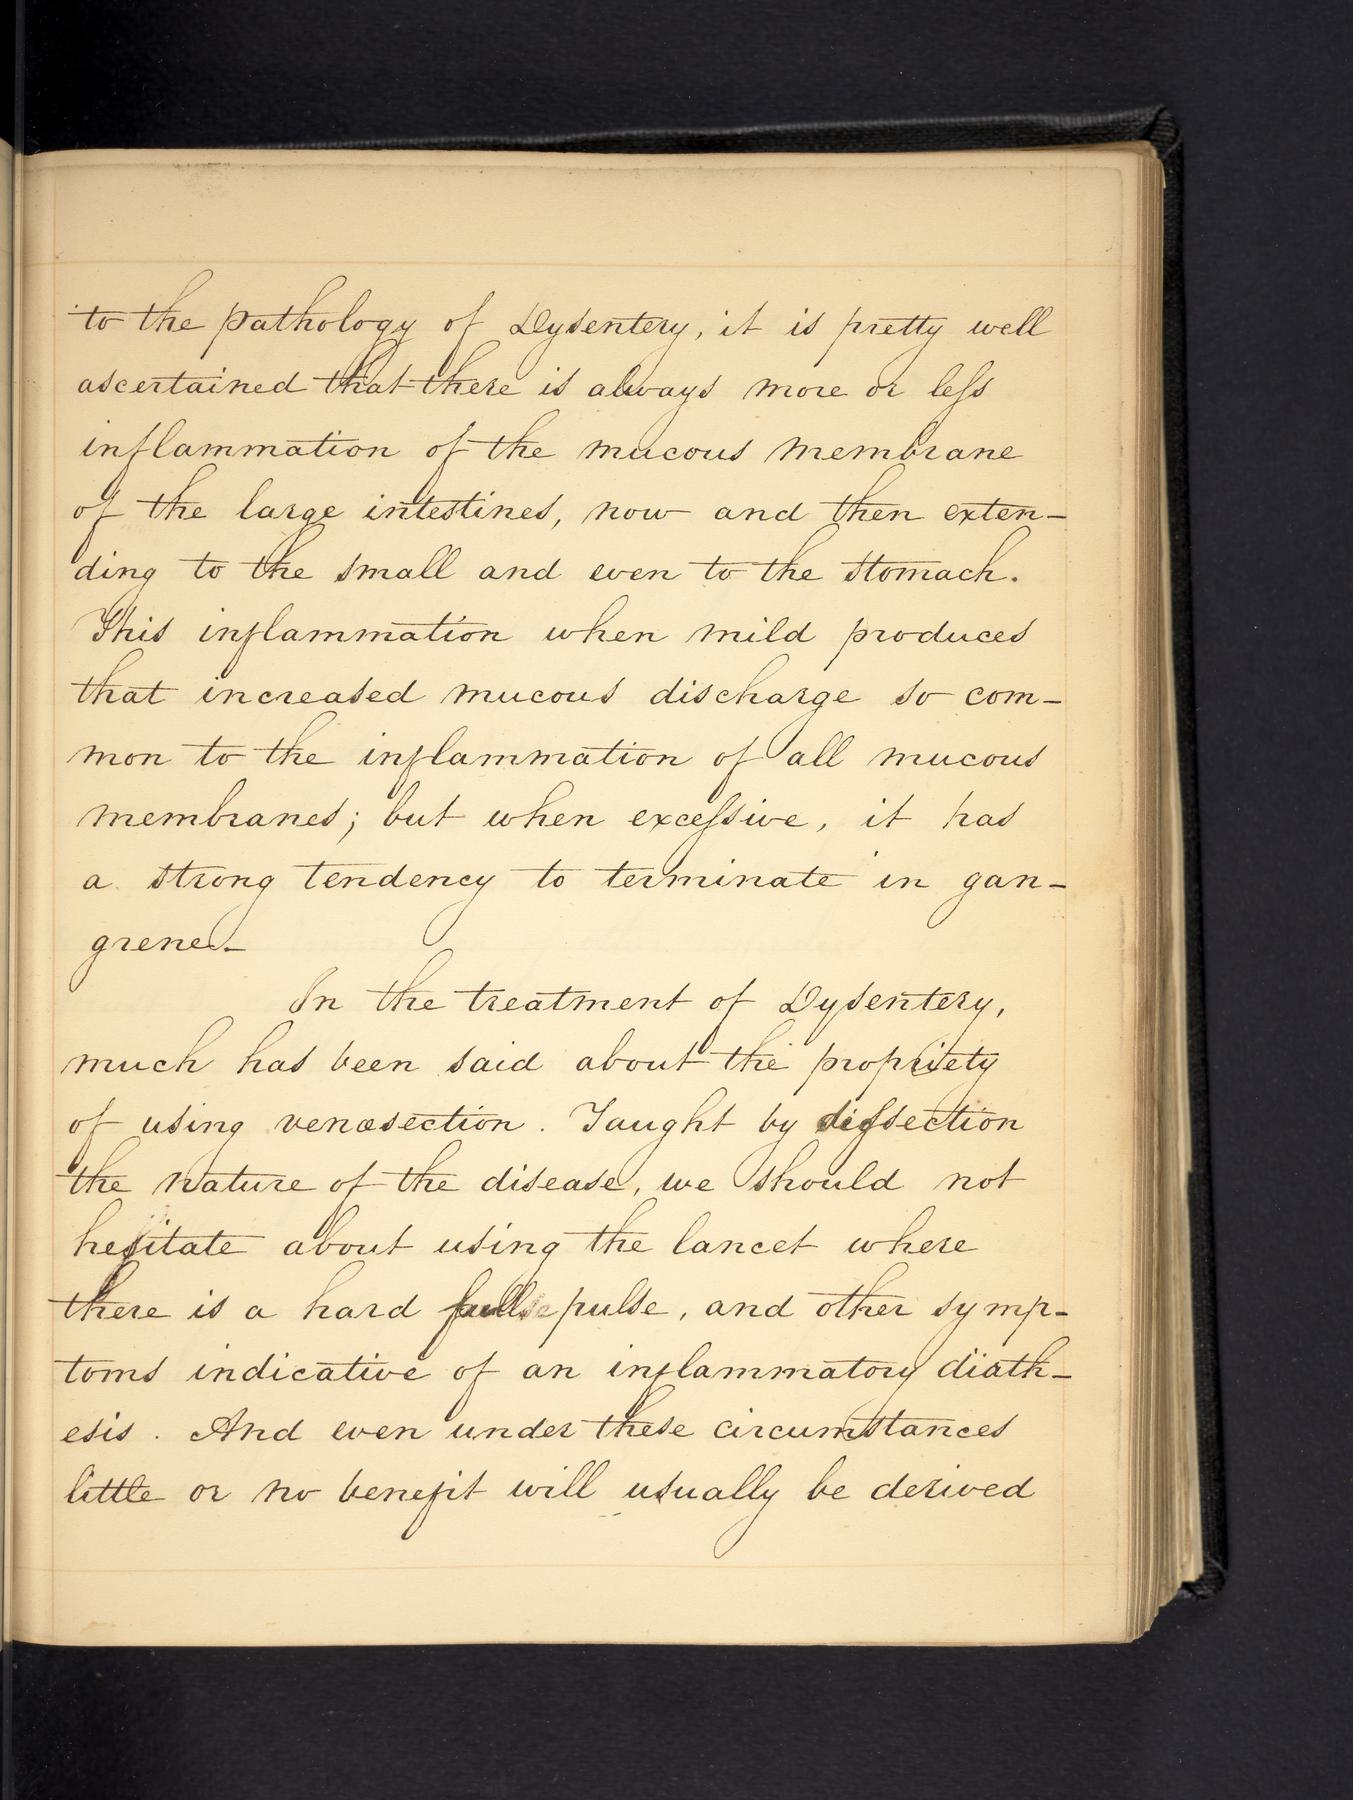 to the pathology of Dysentery, it is pretty well
ascertained that there is always more or less
inflammation of the mucous membrane
of the large intestines, now and then exten-
ding to the small and even to the stomach.
This inflammation when mild produces
that increased mucous discharge so com-
mon to the inflammation of all mucous
membranes; but when excessive, it has
a strong tendency to terminate in gan-
grene.-
In the treatment of Dysentery,
much has been said about the propriety
of using venæsection. Taught by dissection
the nature of the disease, we should not
hesitate about using the lancet where
there is a hard full pulse, and other symp-
toms indicative of an inflammatory diath-
esis. And even under these circumstances
little or no benefit will usually be derived